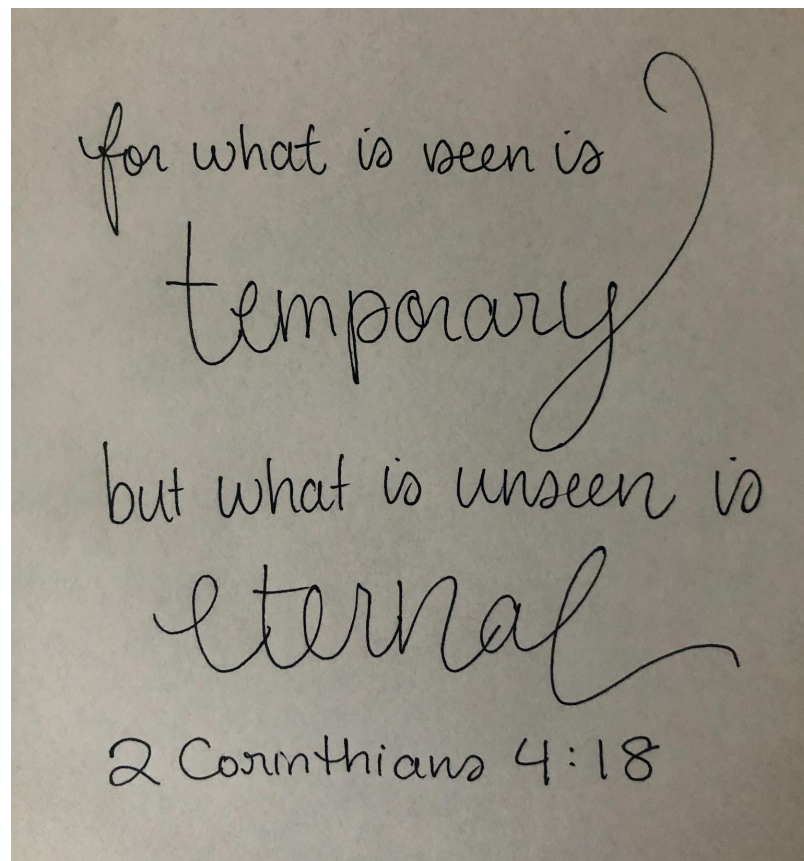 for what is seen is
temporary
but what is unseen is
eternal
2 Corinthians 4:18